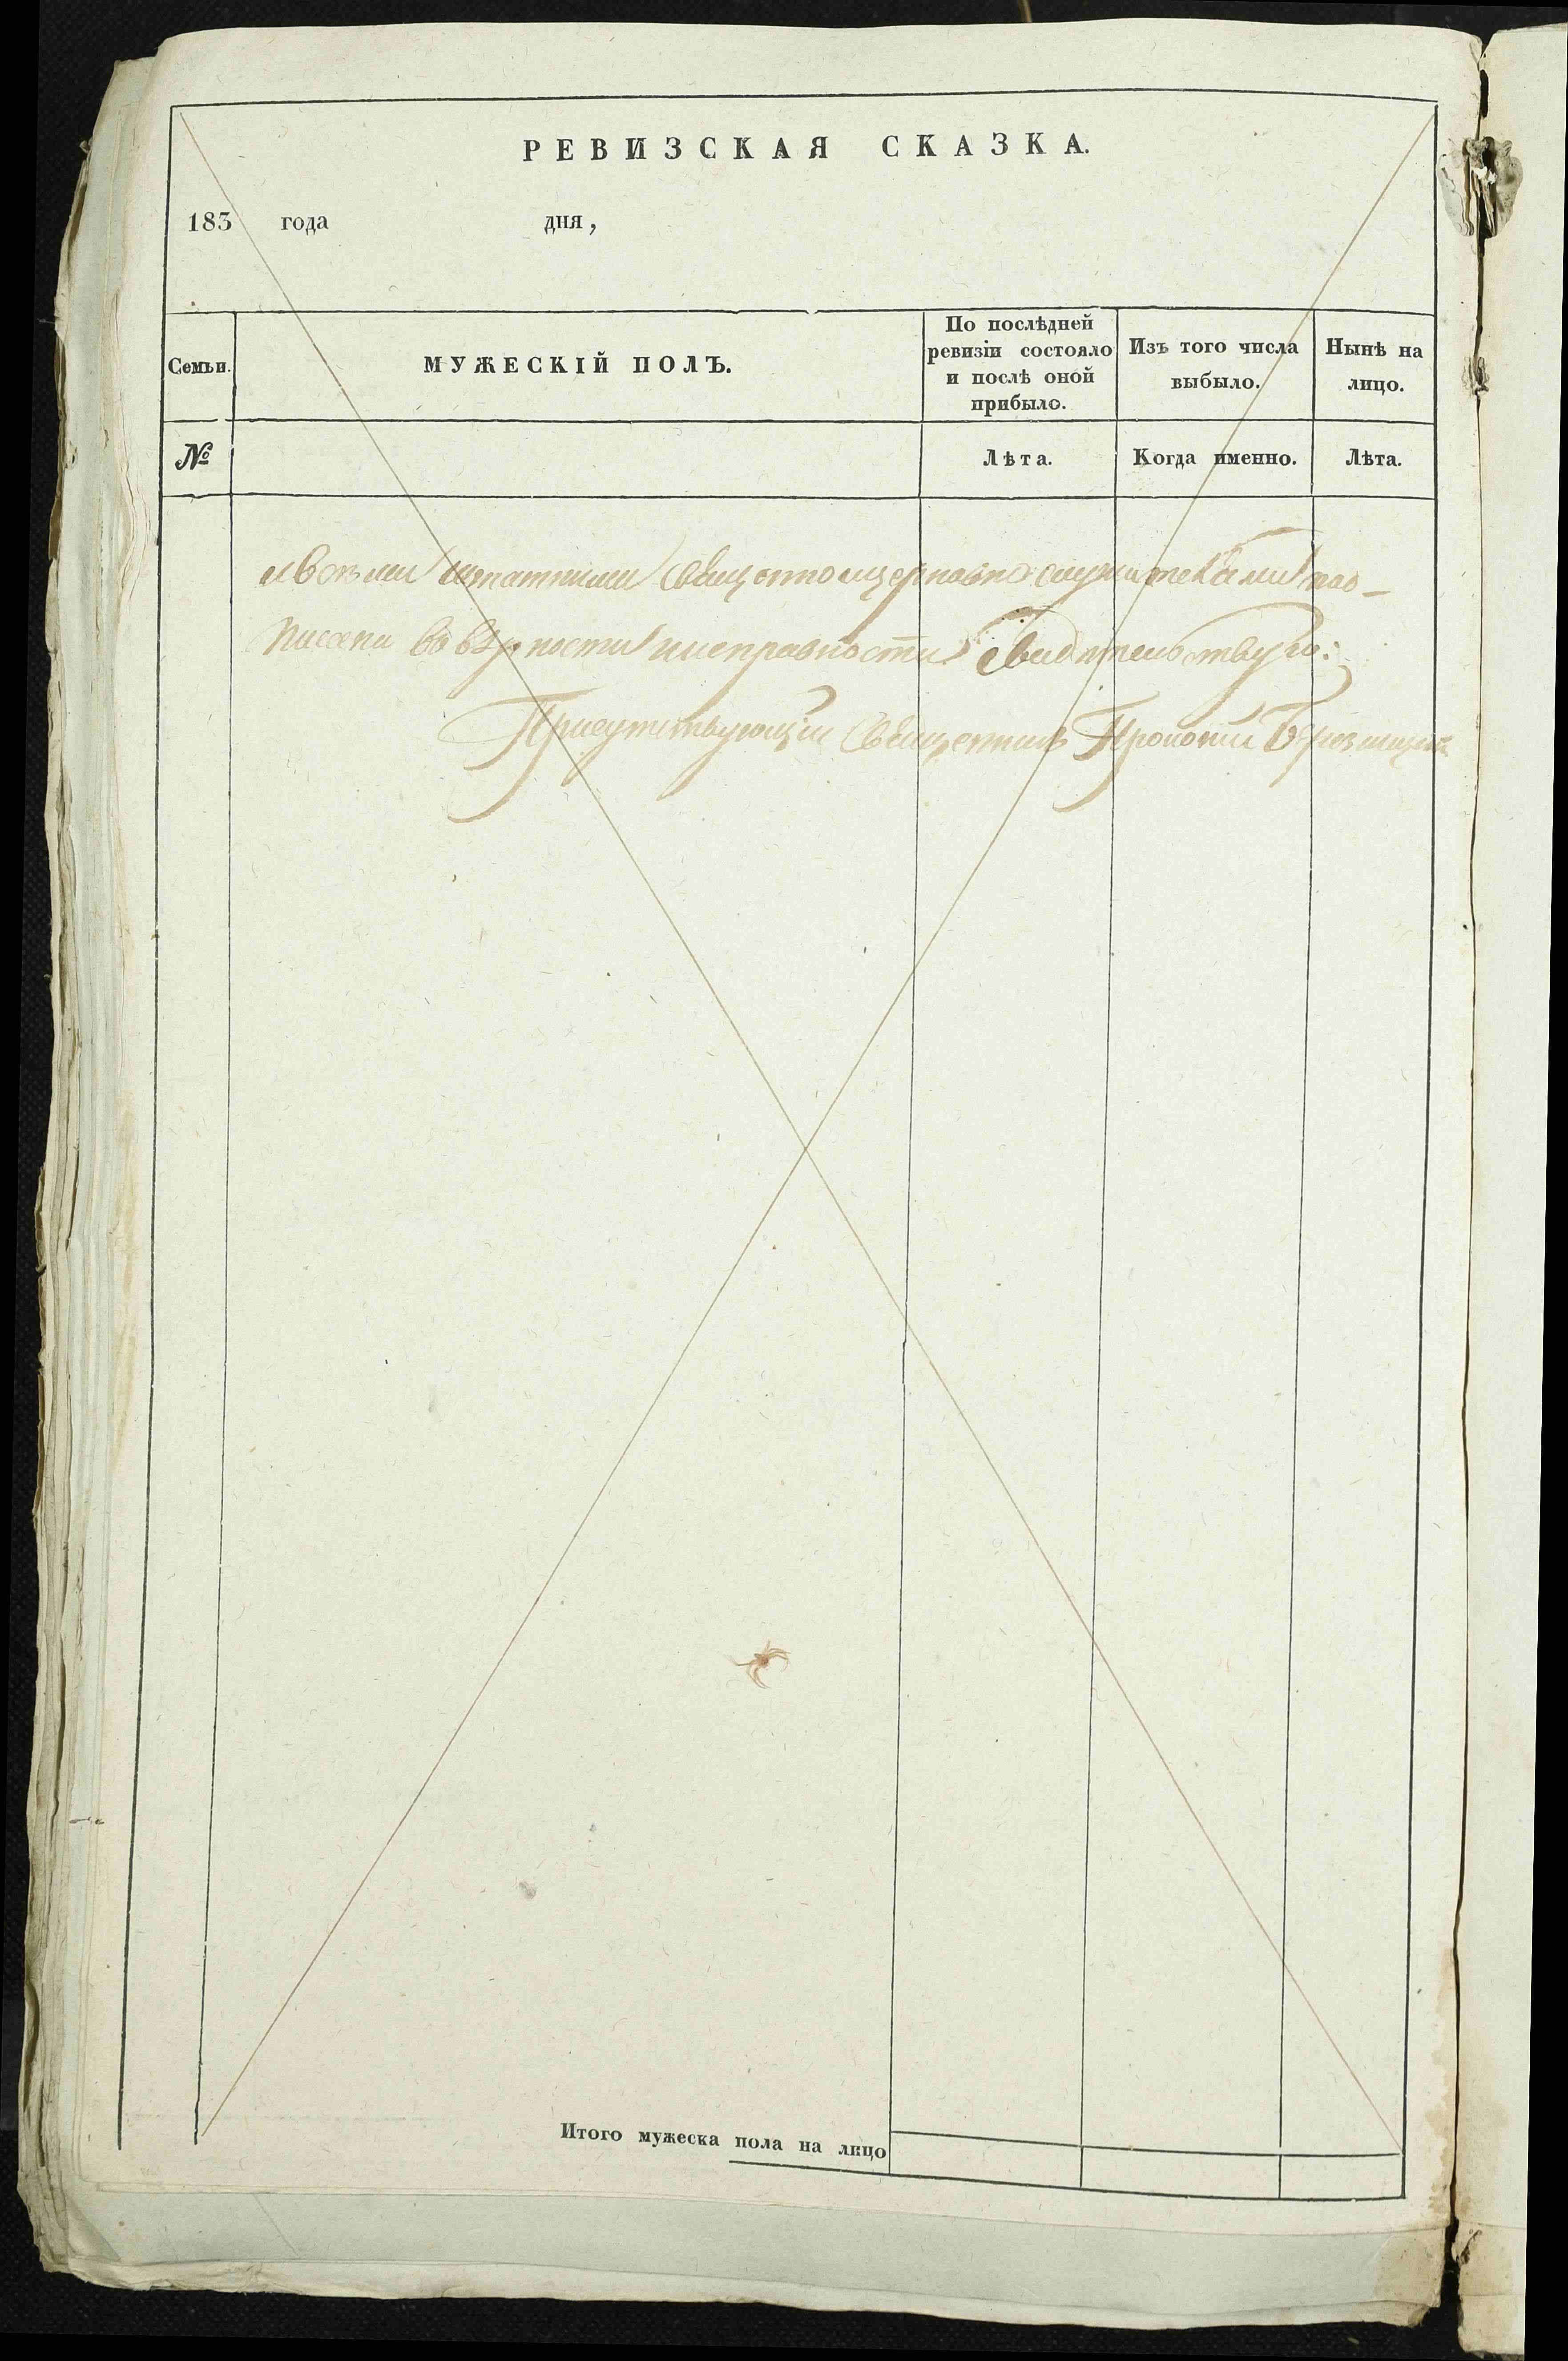 РЕВИЗСКАЯ СКАЗКА.
183 года дня,
Семьи.
МУЖЕСКІЙ ПОЛЪ.
По послѣдней
ревизіи состояло
и послѣ оной
прибыло.
Изъ того числа
выбыло.
Нынѣ на
лицо.
№
Лѣта.
Когда именно.
Лѣта.
штатными священноцерковно служителями под-
писана въ вѣрности и исправности свидѣтельствую:
Присутствующій Священникъ Прокопій
Итого мужеска пола на лицо